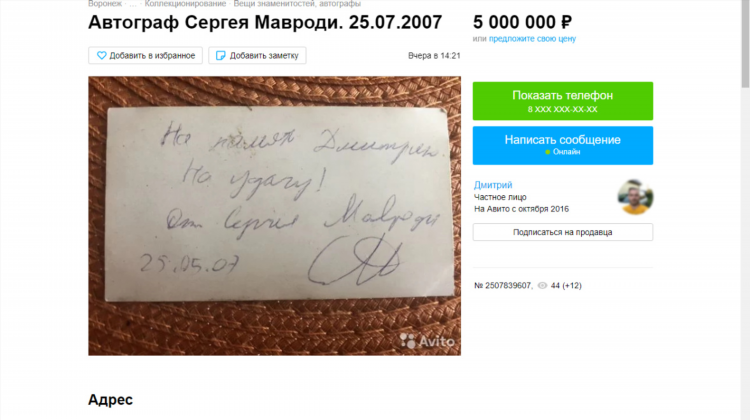 Воронеж · ... · Коллекционирование · Вещи знаменитостей, автографы
Автограф Сергея Мавроди. 25.07.2007
5 000 000 ₽
или предложите свою цену
Добавить в избранное
Добавить заметку
Вчера в 14:21
Показать телефон
8 XXX XXX-XX-XX
Написать сообщение
Онлайн
На памят Дмитрию.
На удачу!
От Сергея Мавроди
25.05.07
Avito
Дмитрий
Частное лицо
На Авито с октября 2016
Подписаться на продавца
№ 2507839607, 44 (+12)
Адрес